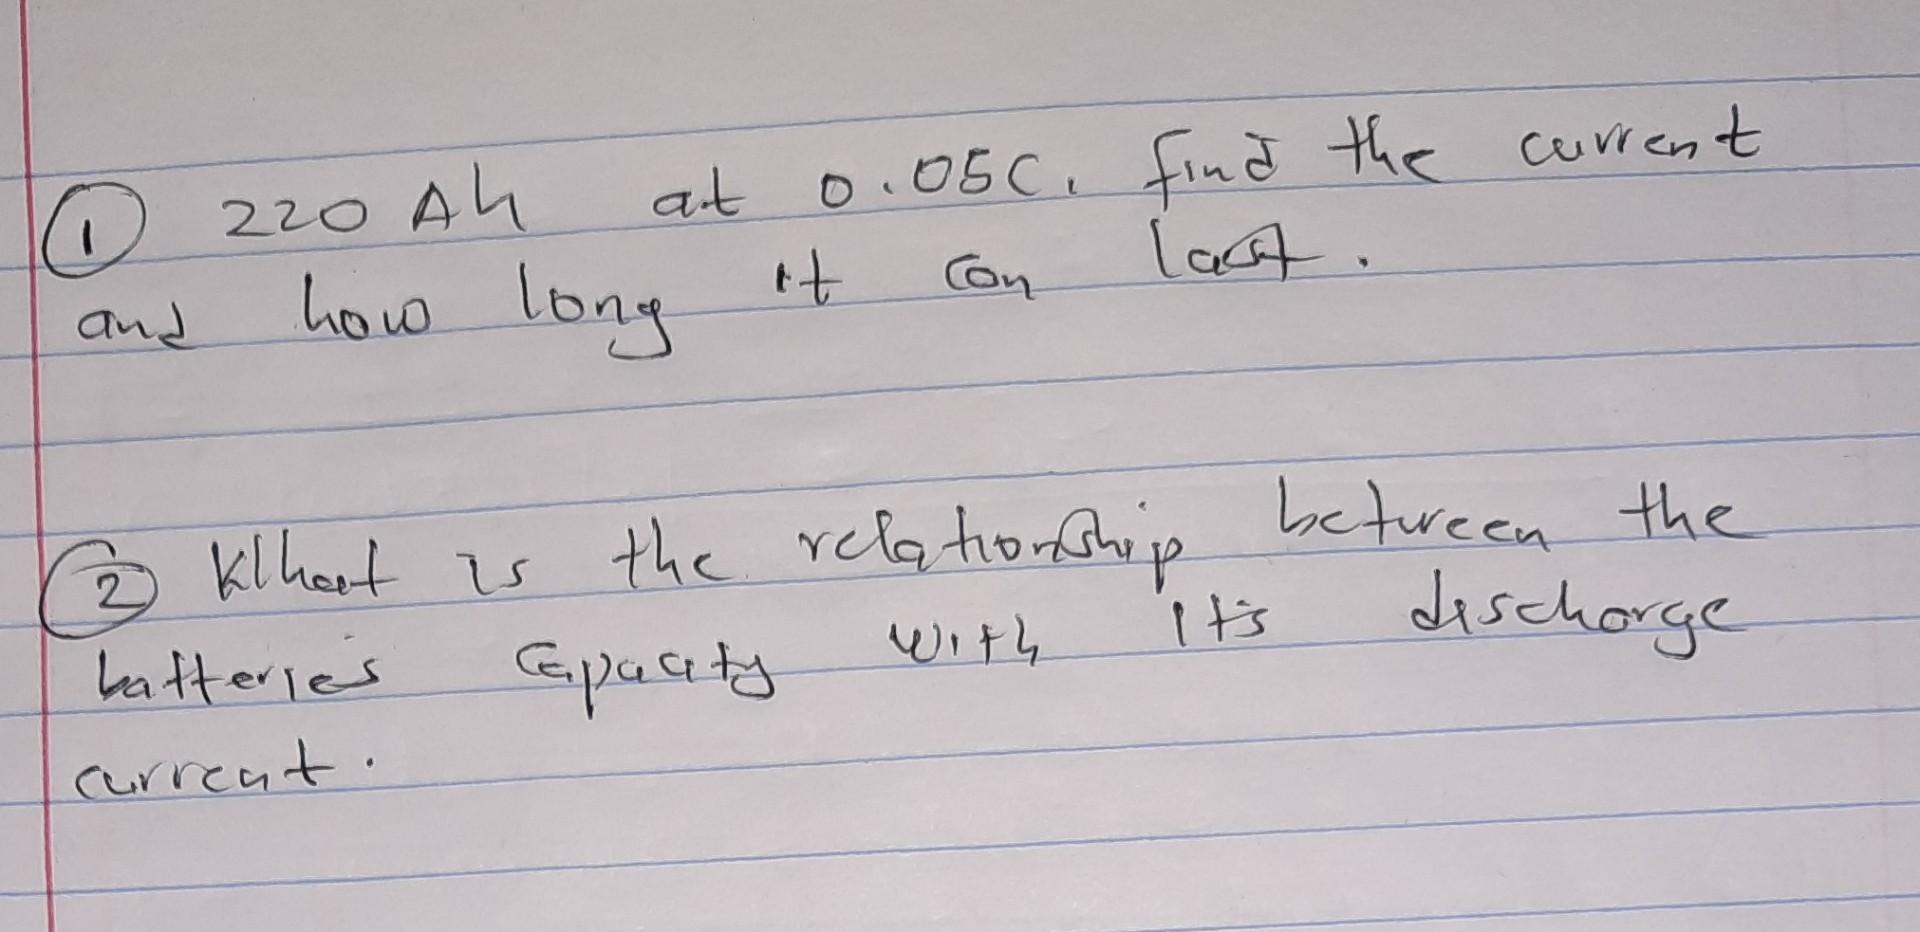 ① 220 Ah at 0.05C. find the current
and how long it can last.
② What is the relationship between the
batteries capacity with it's discharge
current.